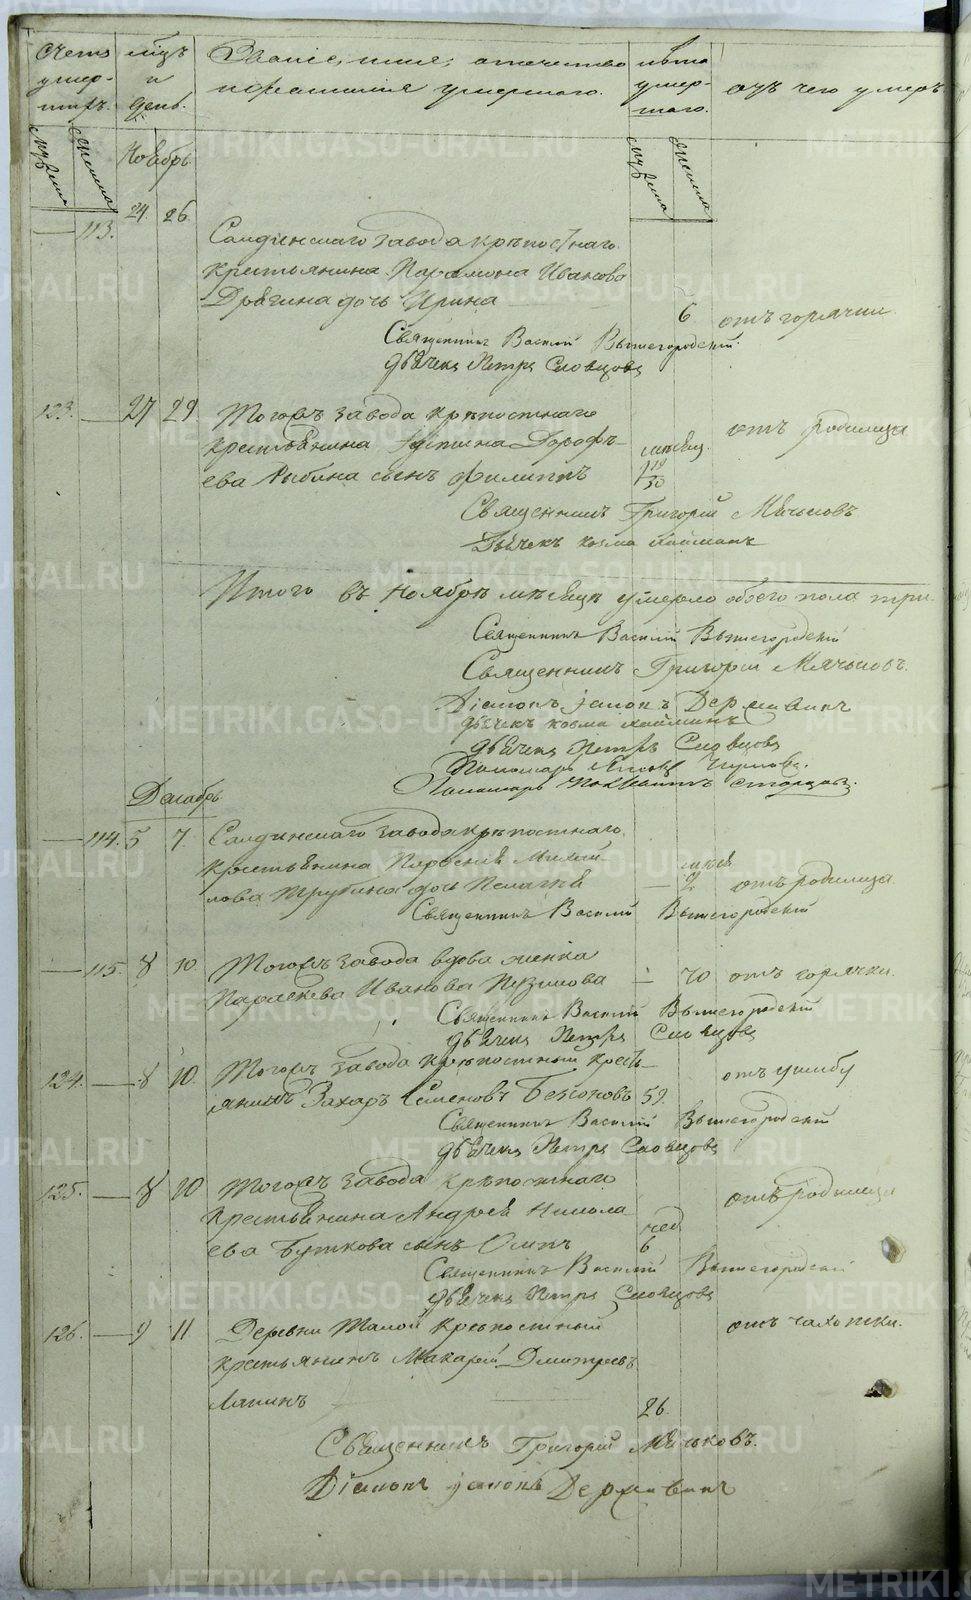 Счетъ умер-
шихъ.
мѣсяцъ
и
день.
Званіе, имя, отечество
и фамилія умершаго.
лѣта
умер-
шаго.
отъ чего умеръ
мужеска
женска
мужеска
женска
Ноябрь
113. 24. 26.
Салдинскаго завода крѣпостнаго
крестьянина Парамона Иванова
дочь Ирина
6 отъ горячки
Священникъ Василій Вышегородскій
дьячекъ Петръ Словцовъ
123. 27 29 Тогожъ завода крѣпостнаго
крестьянина Дорофѣ-
ева Рыбина сынъ Филиппъ
отъ родимца
Священникъ Григорій Мячковъ
Дьячекъ Козма
Итого въ Ноябрѣ мѣсяцѣ умерло обоего пола три.
Священникъ Василій Вышегородскій
Священникъ Григорій Мячковъ.
Діаконъ Державинъ
дьячекъ Козма
дьячекъ Петръ Словцовъ
Пономарь
Пономарь
Декабрь
114. 5 7. Салдинскаго завода крѣпостнаго
крестьянина Михай-
лова Трубина дочь Пелагея
2 отъ родимца
Священникъ Василій Вышегородскій
115. 8 10. Тогожъ завода вдова женка
Параскева Иванова
70 отъ горячки.
Священникъ Василій Вышегородскій
дьячекъ Петръ Словцовъ
124. 8 10. Тогожъ завода крѣпостный кресть-
янинъ Захаръ Семеновъ 59.
отъ ушибу
Священникъ Василій Вышегородскій
дьячекъ Петръ Словцовъ
125. 8 10 Тогожъ завода крѣпостнаго
крестьянина Андрея Никола
ева Буткова сынъ
нед.
6
отъ родимца
Священникъ Василій Вышегородскій
дьячекъ Петръ Словцовъ
126. 9 11 Деревни крѣпостный
крестьянинъ Макарей Дмитревъ
Лапинъ
26.
отъ чахотки.
Священникъ Григорій Мячковъ.
Діаконъ Державинъ
METRIKI.GASO-URAL.RU